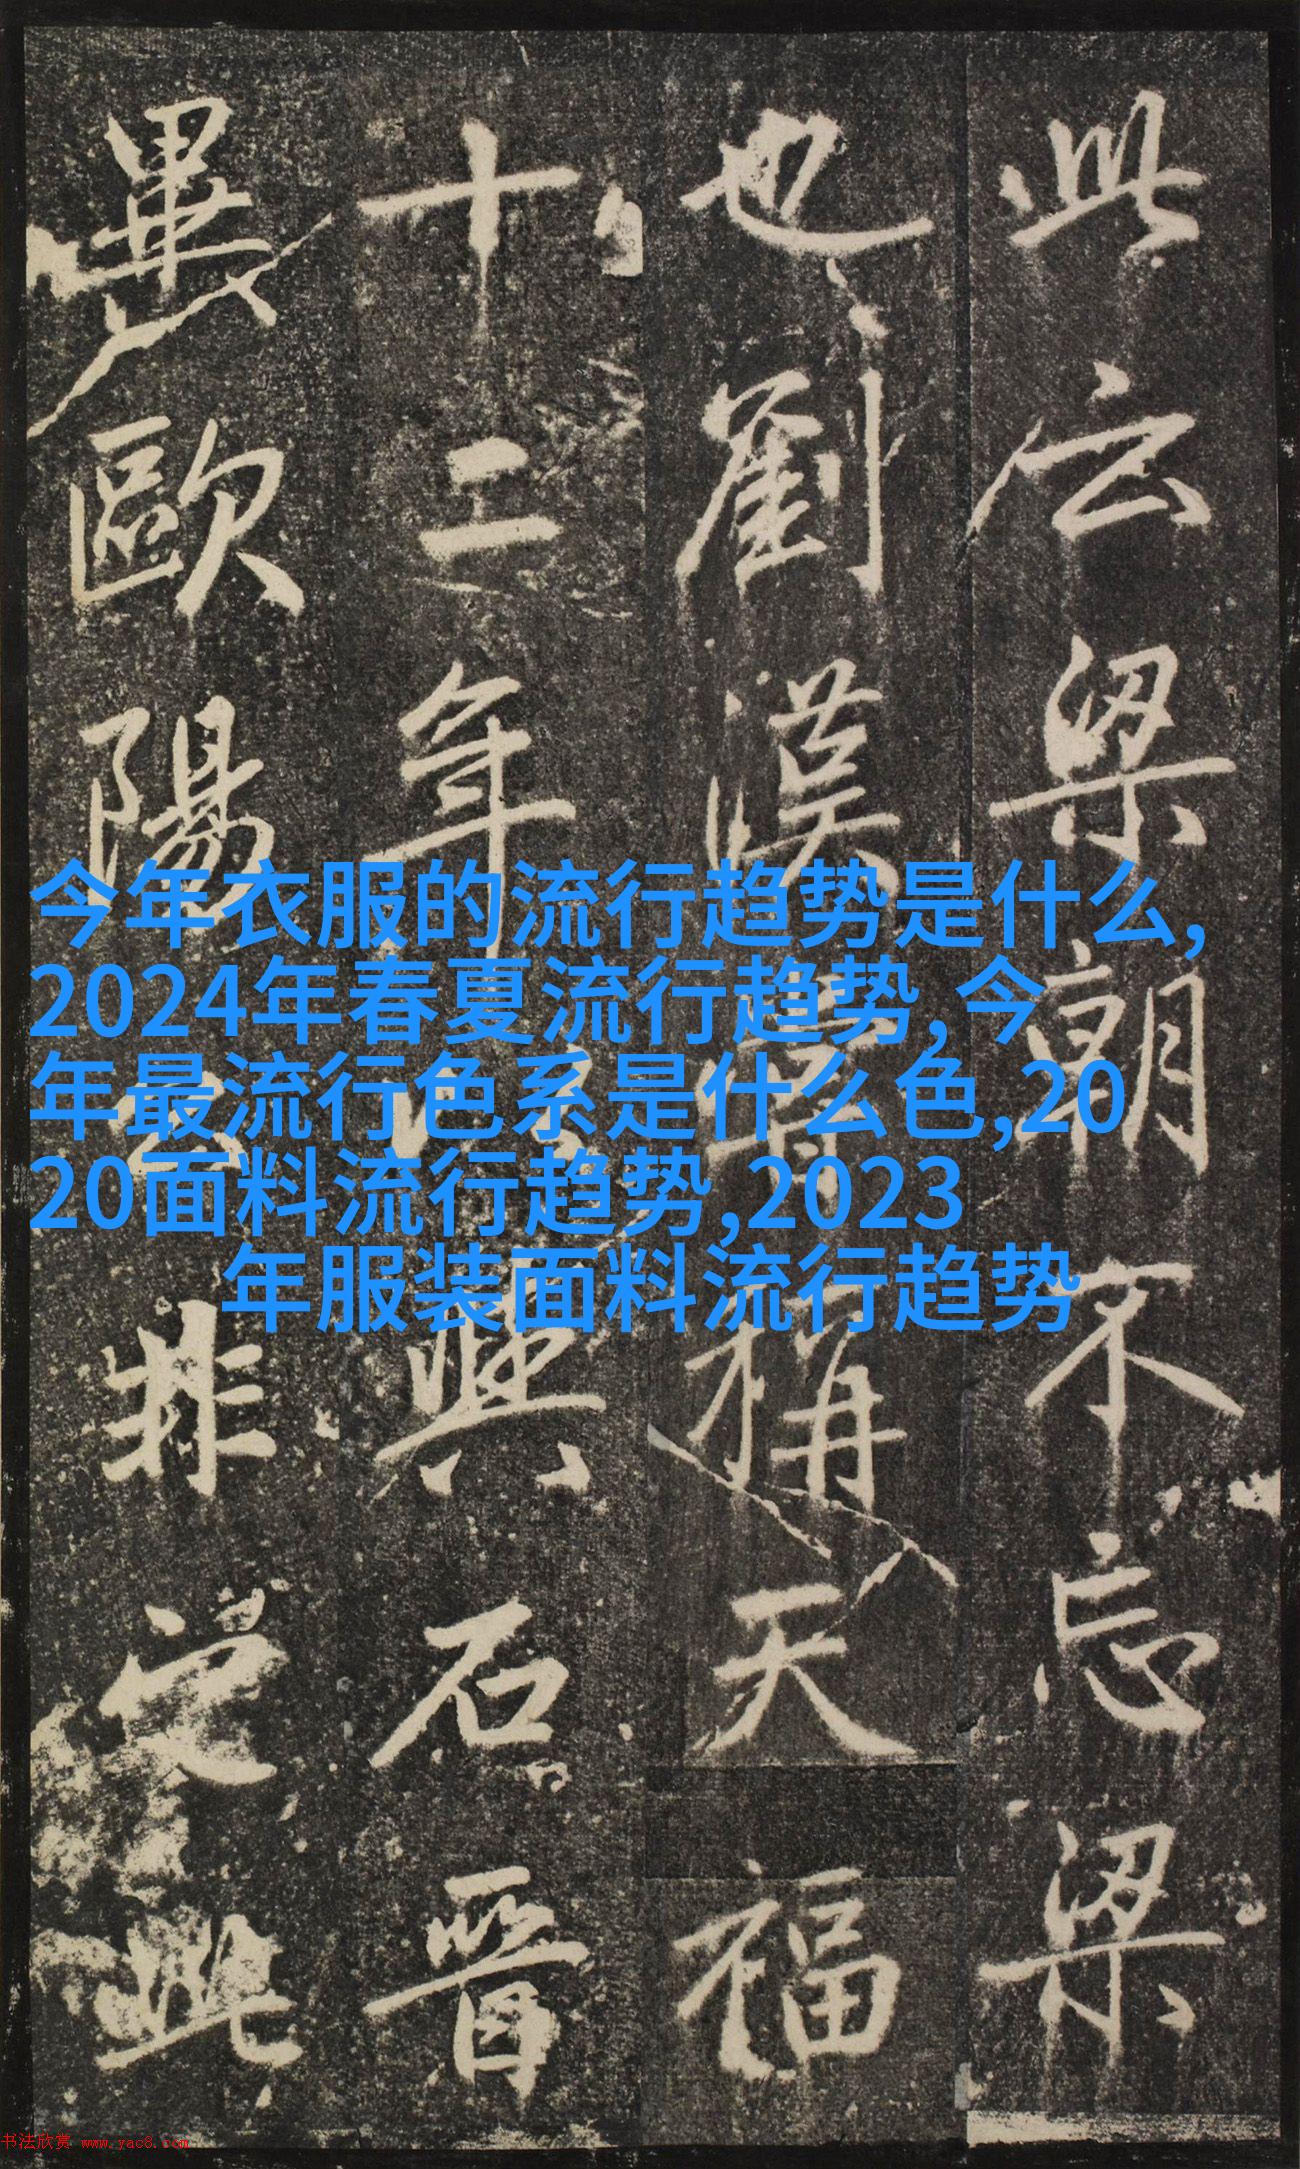 此云梁朝不忘梁
也劉漢稱天福
十二年與石晉
畢歐陽公非此
今年衣服的流行趋势是什么,
2024年春夏流行趋势,今
年最流行色系是什么色,20
20面料流行趋势,2023
年服装面料流行趋势
书法欣赏 www.yac8.com